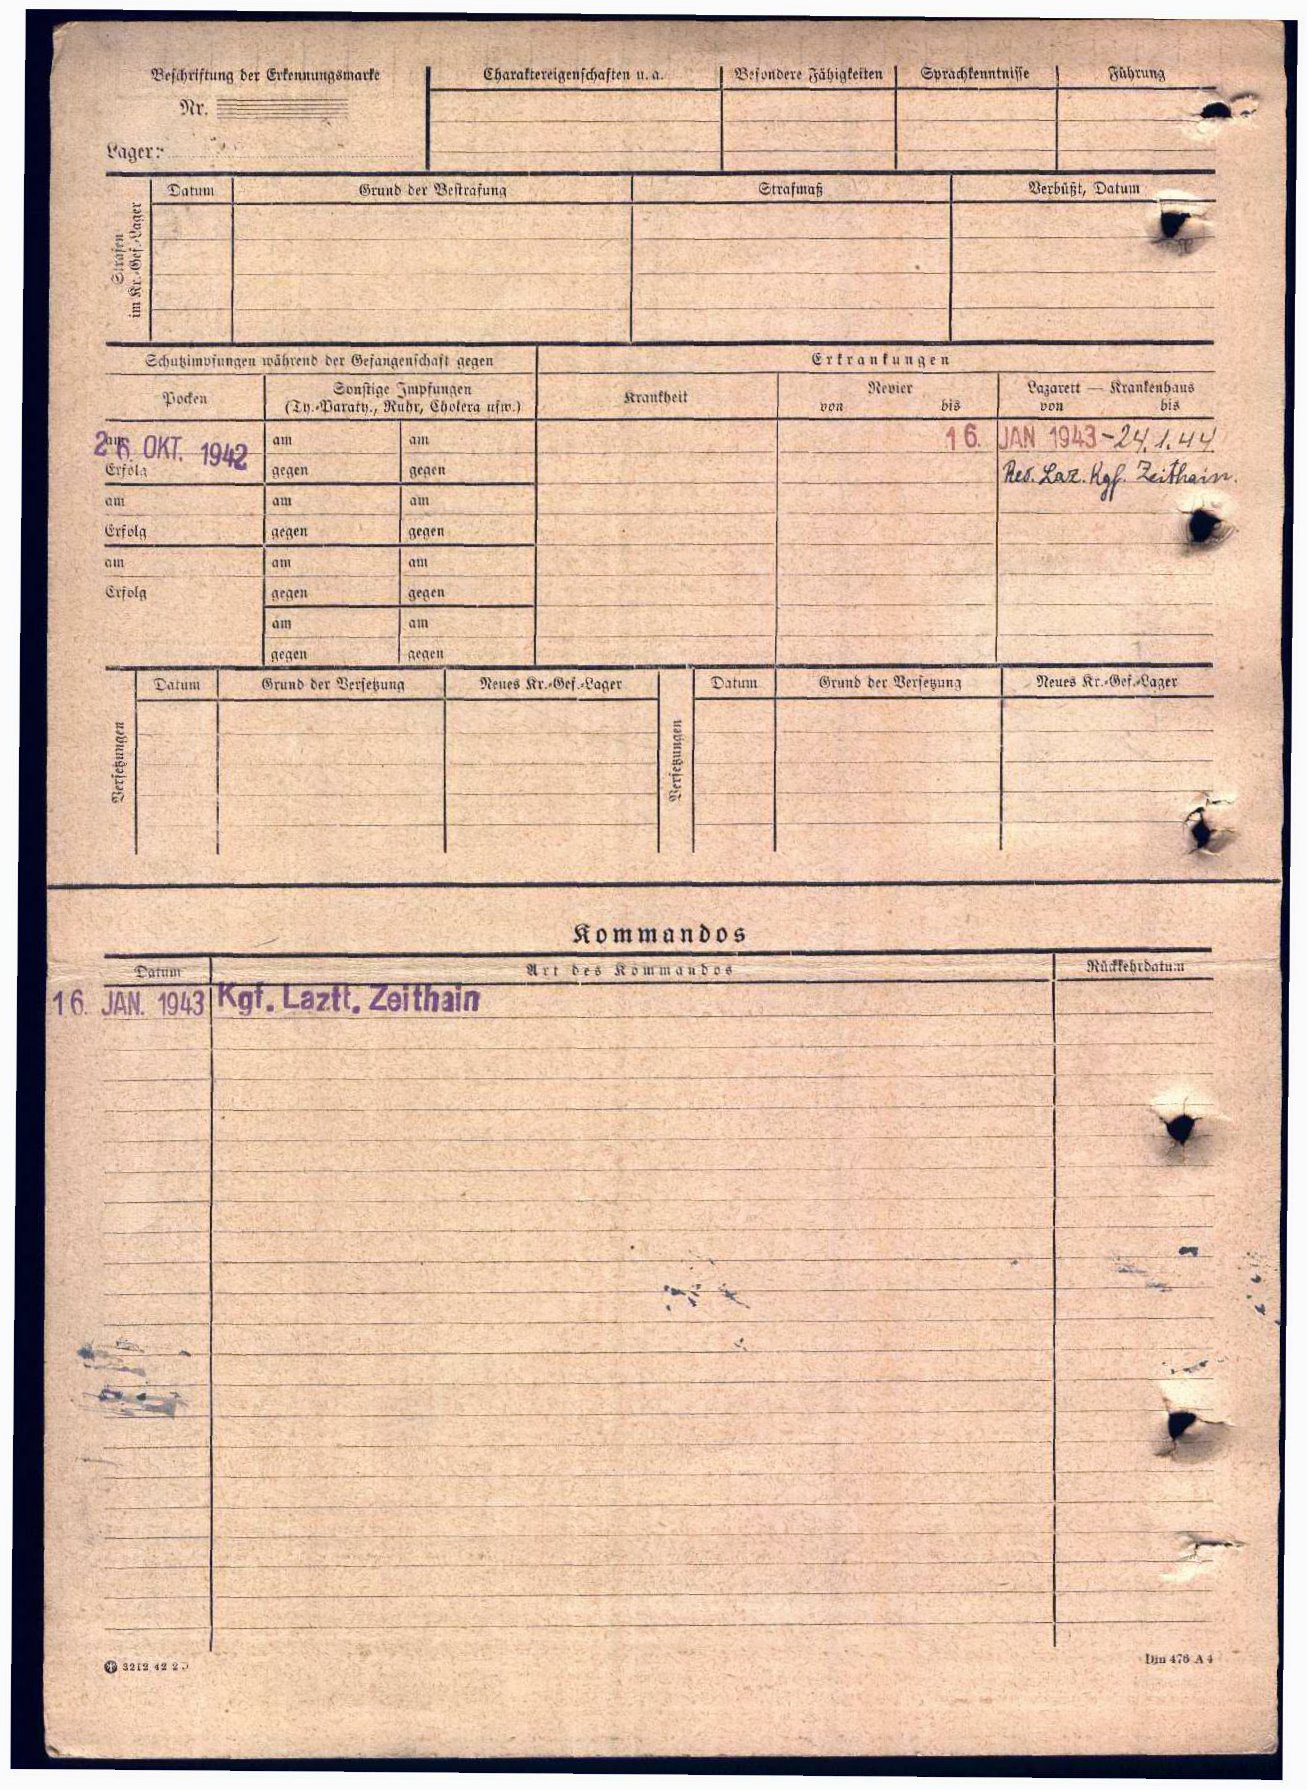 Beschriftung der Erkennungsmarke
Nr.
Lager:
Charaktereigenschaften u. a.
Besondere Fähigkeiten
Sprachkenntnisse
Führung
Strafen
im Kr.-Gef.-Lager
Datum
Grund der Bestrafung
Strafmaß
Verbüßt, Datum
Schutzimpfungen während der Gefangenschaft gegen
Erkrankungen
Pocken
Sonstige Impfungen
(Ty.-Paraty., Ruhr, Cholera usw.)
Krankheit
Revier
von bis
Lazarett — Krankenhaus
von bis
am am am
26. OKT. 1942
16. JAN 1943 - 24.1.44.
Erfolg gegen gegen
Res. Laz. Kgf. Zeithain.
am am am
Erfolg gegen gegen
am am am
Erfolg gegen gegen
am am
gegen gegen
Versetzungen
Datum
Grund der Versetzung
Neues Kr.-Gef.-Lager
Versetzungen
Datum
Grund der Versetzung
Neues Kr.-Gef.-Lager
Kommandos
Datum
Art des Kommandos
Rückkehrdatum
16. JAN. 1943 Kgf. Laztt. Zeithain
3212 42 2
Din 476 A 4